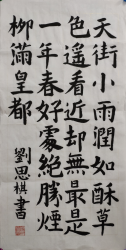 天街小雨潤如酥草
色遙看近却無最是
一年春好處絕勝煙
柳滿皇都
劉思祺書